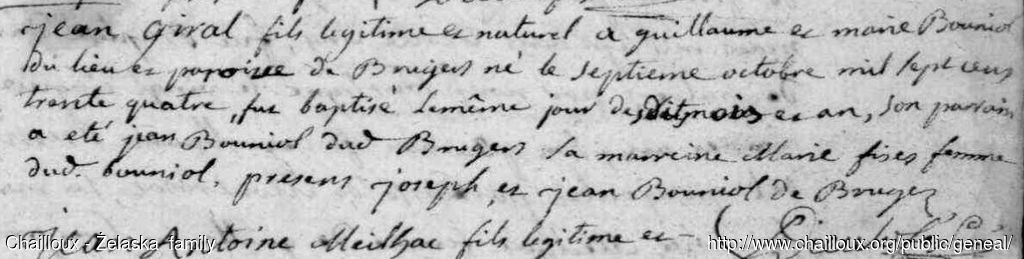 jean giral fils legitime et naturel a guillaume et marie Bouniol
du lieu et paroisse de Brugers né le septieme octobre mil sept cens
trente quatre, fut baptisé le même jour desdits mois et an, son parrain
a eté jean Bouniol dud Brugers sa marreine Marie fises femme
dud. bouniol, presens joseph, et jean Bouniol de Bruges
Jean Antoine Meilhac fils legitime et
Chailloux - Želaska family
http://www.chailloux.org/public/geneal/